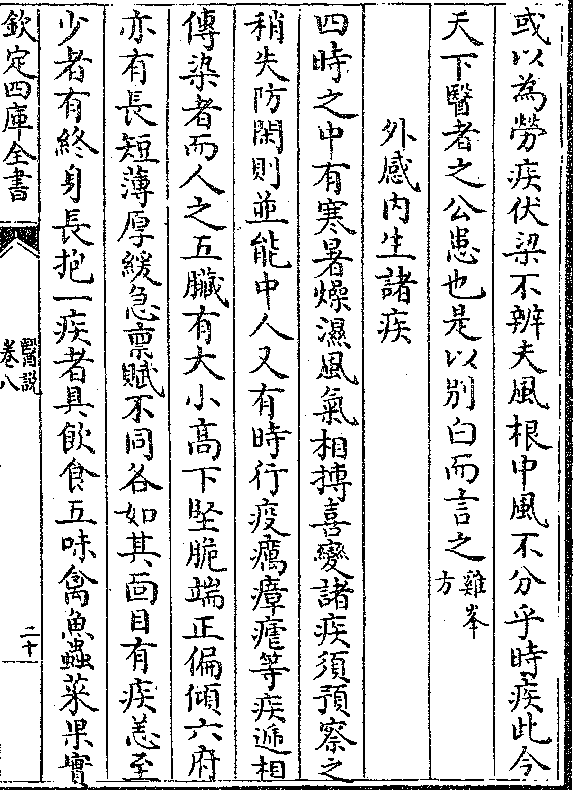 或以為勞疾伏梁不辨夫風根中風不分乎時疾此今
天下醫者之公患也是以別白而言之雞峯方
外感内生諸疾
四時之中有寒暑燥濕風氣相搏喜變諸疾須預察之
稍失防閑則並能中人又有時行疫癘瘴瘧等疾遞相
傳染者而人之五臟有大小高下堅脆端正偏傾六府
亦有長短薄厚緩急禀賦不同各如其面目有疾恙至
少者有終身長抱一疾者具飲食五味禽魚蟲菜果實
欽定四庫全書
醫說
卷八
二十